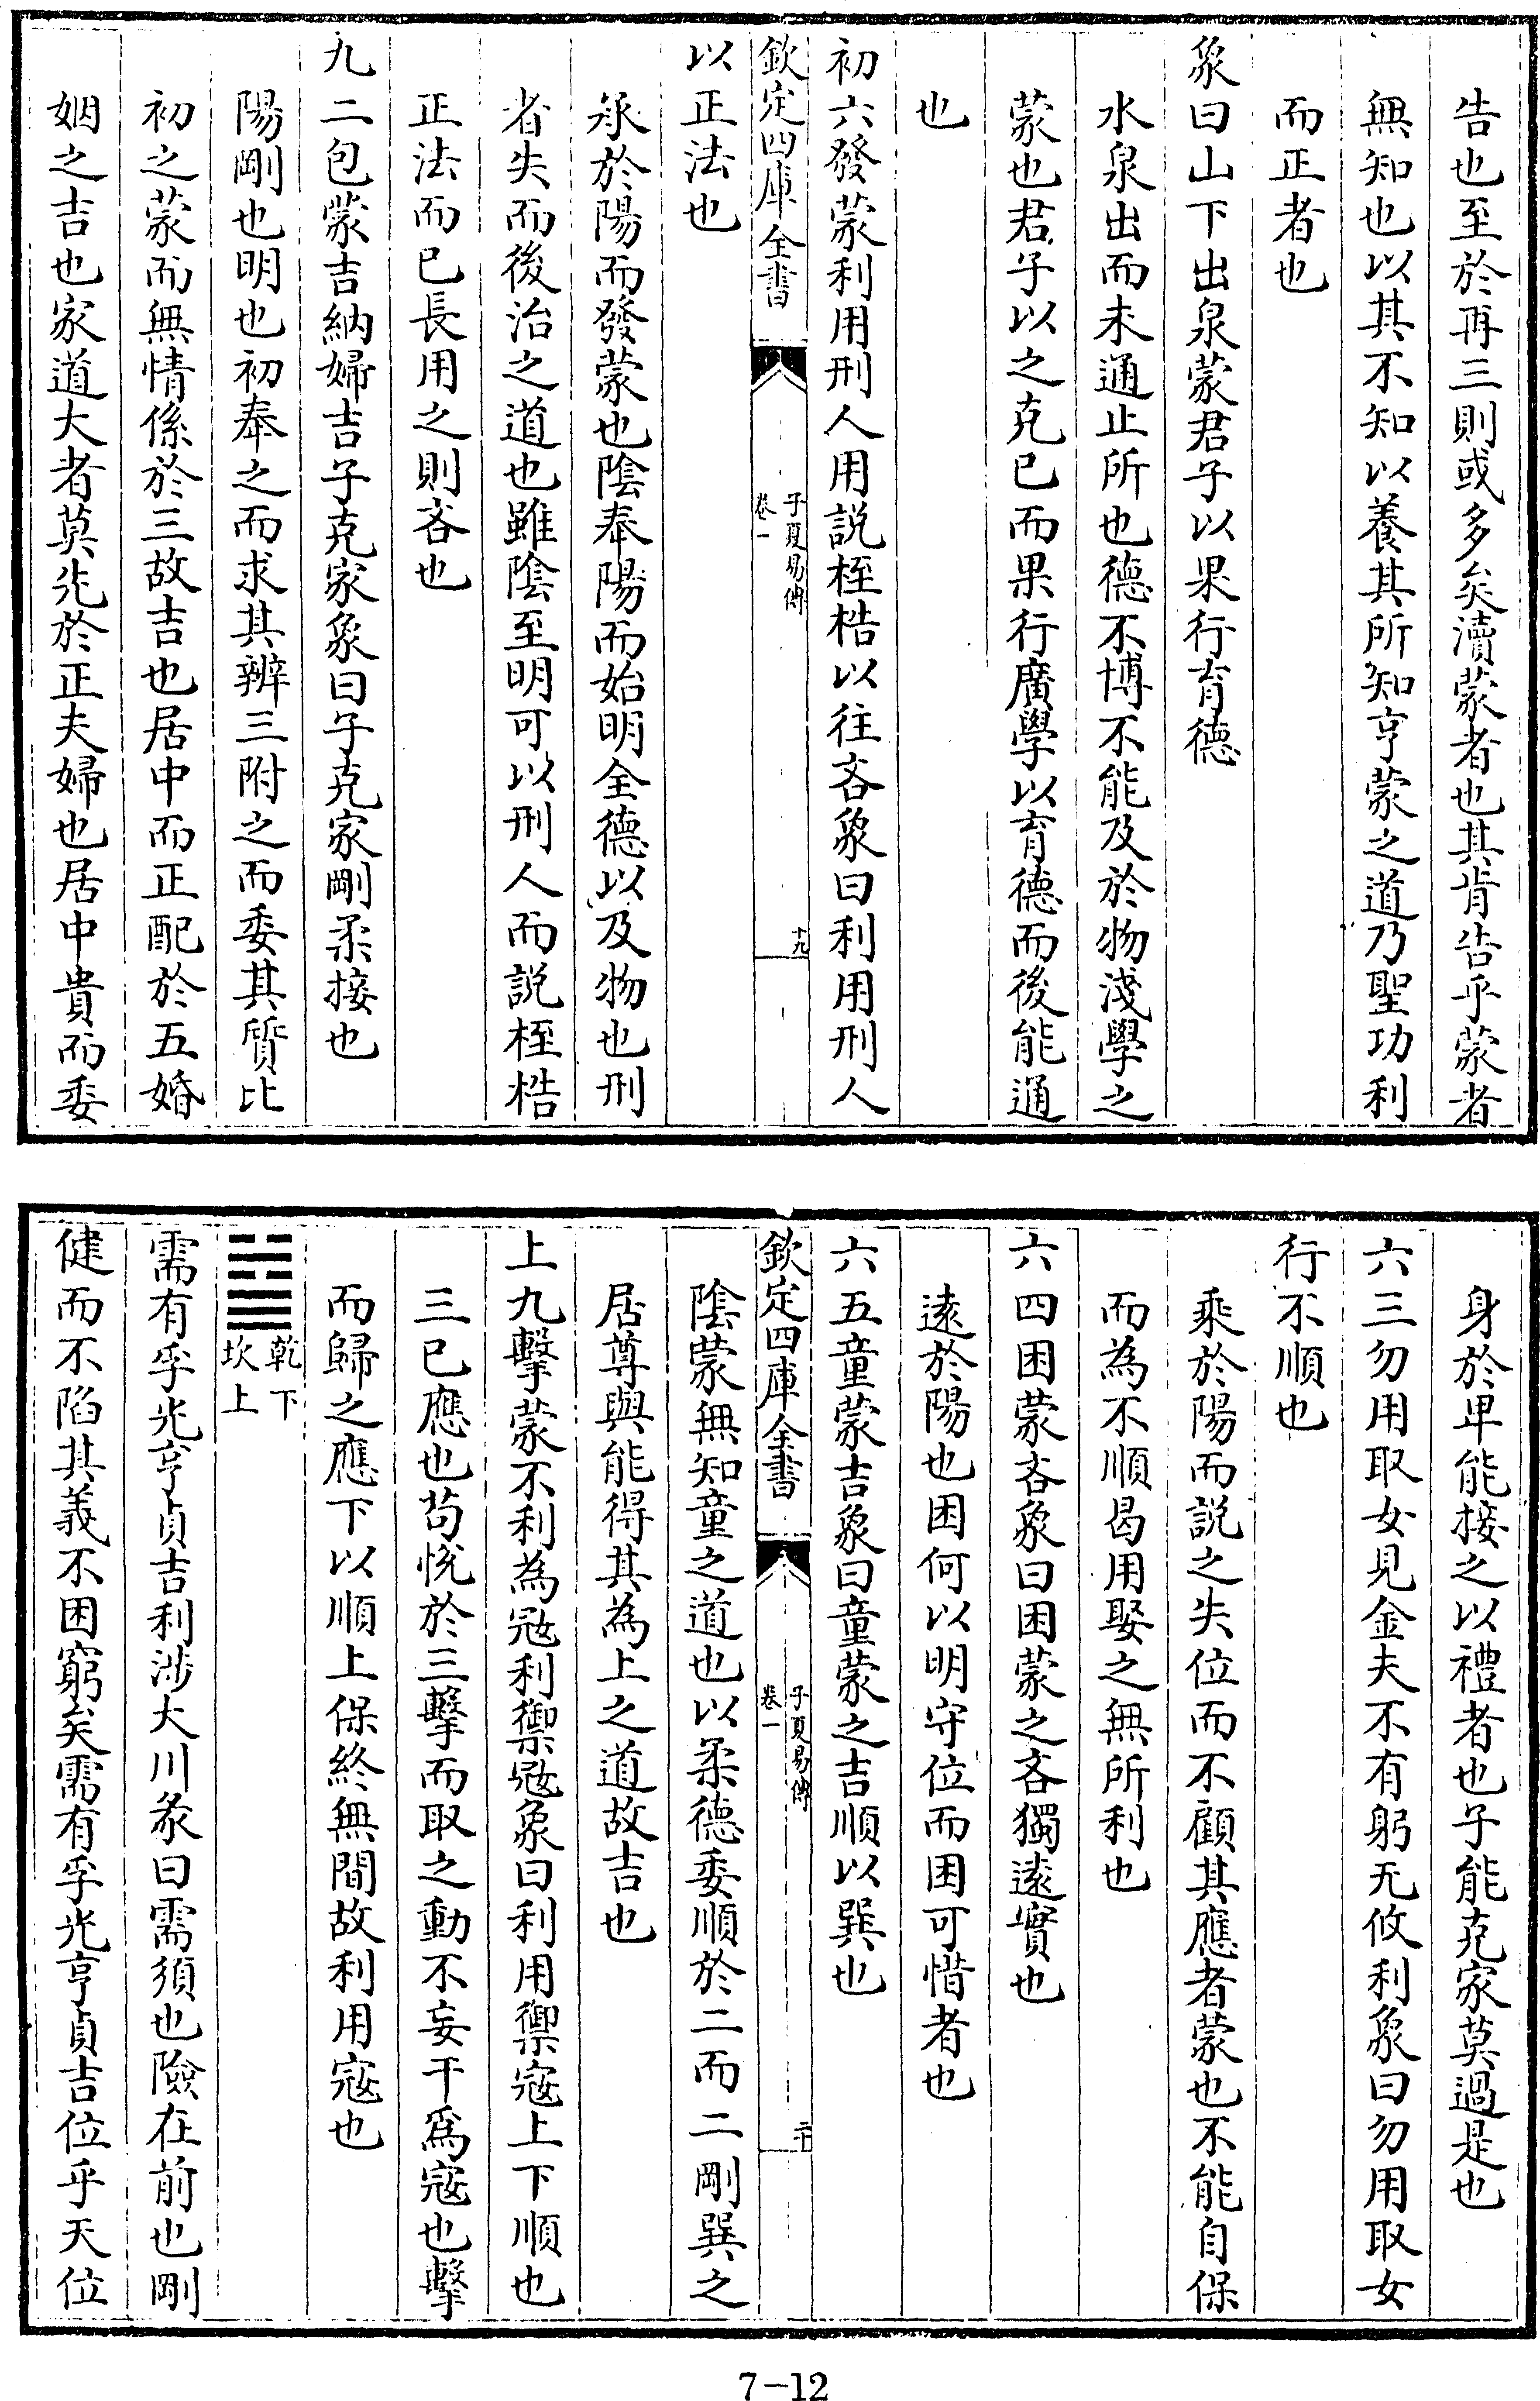 告也至於再三則或多矣瀆蒙者也其肯告乎蒙者
無知也以其不知以養其所知亨蒙之道乃聖功利
而正者也
象曰山下出泉蒙君子以果行育德
水泉出而未通止所也德不博不能及於物淺學之
蒙也君子以之克已而果行廣學以育德而後能通
也
初六發蒙利用刑人用説桎梏以往吝象曰利用刑人
欽定四庫全書
子夏易傳
卷一
十九
以正法也
承於陽而發蒙也陰奉陽而始明全德以及物也刑
者失而後治之道也雖陰至明可以刑人而説桎梏
正法而已長用之則吝也
九二包蒙吉納婦吉子克家象曰子克家剛柔接也
陽剛也明也初奉之而求其辨三附之而委其質比
初之蒙而無情係於三故吉也居中而正配於五婚
姻之吉也家道大者莫先於正夫婦也居中貴而委
身於卑能接之以禮者也子能克家莫過是也
六三勿用取女見金夫不有躬无攸利象曰勿用取女
行不順也
乘於陽而説之失位而不顧其應者蒙也不能自保
而為不順曷用娶之無所利也
六四困蒙吝象曰困蒙之吝獨遠實也
遠於陽也困何以明守位而困可惜者也
六五童蒙吉象曰童蒙之吉順以巽也
欽定四庫全書
子夏易傳
卷一
二十
陰蒙無知童之道也以柔德委順於二而二剛巽之
居尊與能得其為上之道故吉也
上九擊蒙不利為寇利禦寇象曰利用禦寇上下順也
三已應也苟悅於三擊而取之動不妄干爲寇也擊
而歸之應下以順上保終無間故利用寇也
䷄乾下
坎上
需有孚光亨貞吉利涉大川彖曰需須也險在前也剛
健而不陷其義不困窮矣需有孚光亨貞吉位乎天位
7-12